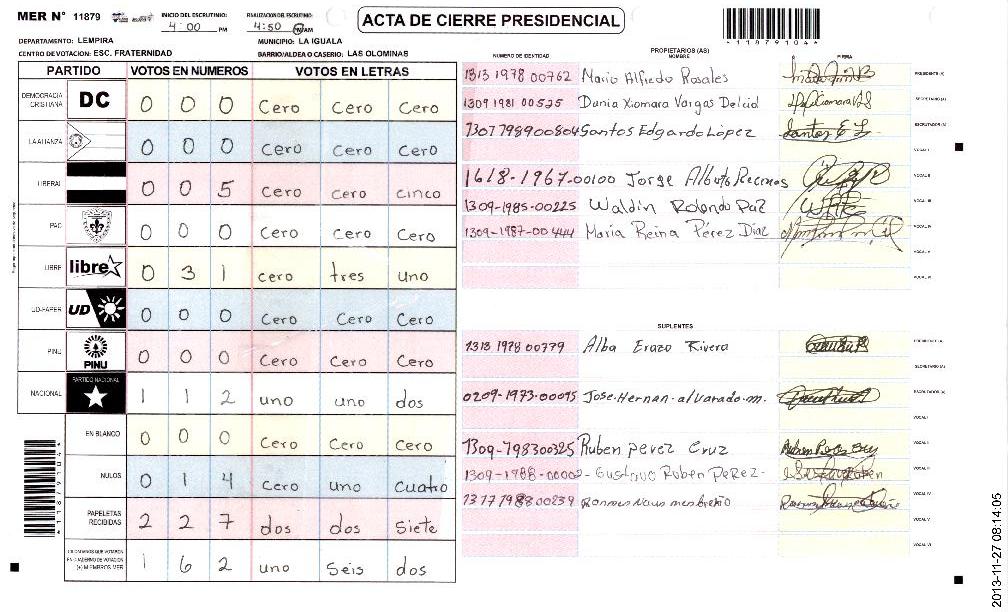 MER N° 11879
INICIO DEL ESCRUTINIO: 4:00 PM
FINALIZACION DEL ESCRUTINIO: 4:50 PM
ACTA DE CIERRE PRESIDENCIAL
*11879104*
DEPARTAMENTO: LEMPIRA
MUNICIPIO: LA IGUALA
CENTRO DE VOTACION: ESC. FRATERNIDAD
BARRIO/ALDEA O CASERIO: LAS OLOMINAS
PARTIDO VOTOS EN NUMEROS VOTOS EN LETRAS
DEMOCRACIA CRISTIANA DC 0 0 0 Cero Cero Cero
LA ALIANZA 0 0 0 cero cero cero
LIBERAL 0 0 5 cero cero cinco
PAC 0 0 0 Cero Cero Cero
LIBRE libre 0 3 1 cero tres uno
UD-FAPER UD 0 0 0 Cero Cero Cero
PINU PINU 0 0 0 Cero Cero Cero
NACIONAL PARTIDO NACIONAL 1 1 2 uno uno dos
EN BLANCO 0 0 0 Cero Cero Cero
NULOS 0 1 4 Cero uno cuatro
PAPELETAS RECIBIDAS 2 2 7 dos dos siete
CIUDADANOS QUE VOTARON EN CUADERNO DE VOTACION (+) MIEMBROS MER 1 6 2 uno seis dos
*11879104*
PROPIETARIOS (AS)
NUMERO DE IDENTIDAD NOMBRE FIRMA
1313 1978 00762 Mario Alfredo Rosales PRESIDENTE (A)
1309 1981 00525 Dunia Xiomara Vargas Delcid SECRETARIO (A)
Santos Edgardo López Santos E L ESCRUTADOR (A)
VOCAL I
1618-1967-00100 Jorge Alberto Recinos VOCAL II
1309-1985-00225 Waldin Rolando Paz VOCAL III
1309-1987-00444 Maria Reina Pérez Diaz VOCAL IV
VOCAL V
VOCAL VI
SUPLENTES
1313 1978 00779 Alba Erazo Rivera PRESIDENTE (A)
SECRETARIO (A)
0209-1973-00095 Jose.Hernan.alvarado.m. ESCRUTADOR (A)
VOCAL I
1309-198300325 Ruben perez Cruz VOCAL II
1309-1988-00002- Gustavo Ruben PeRez- VOCAL III
1317198800239 VOCAL IV
VOCAL V
VOCAL VI
2013-11-27 08:14:05